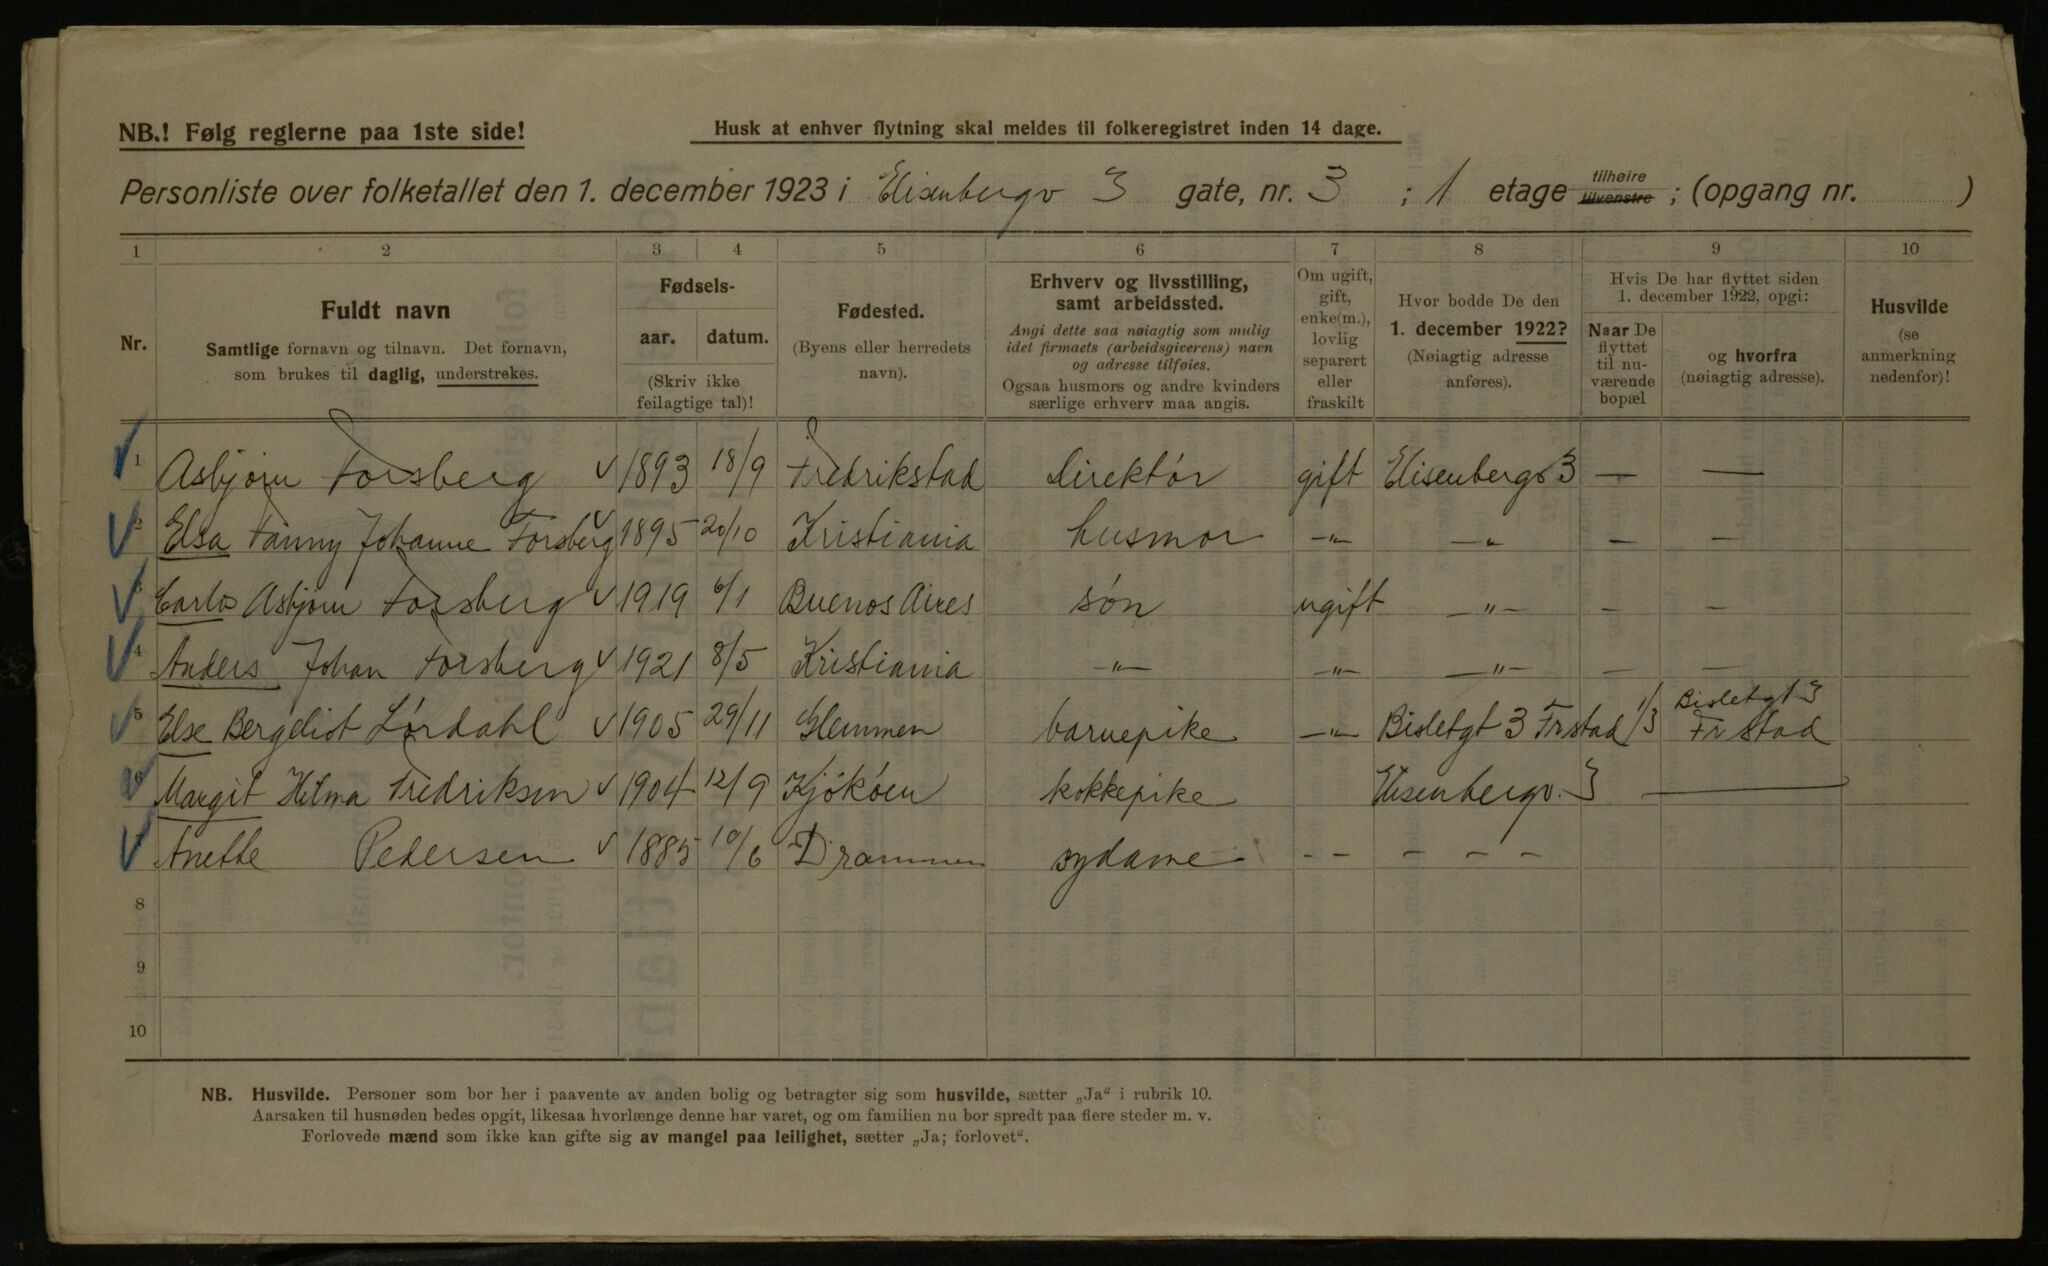 NB.! Følg reglerne paa 1ste side!
Husk at enhver flytning skal meldes til folkeregistret inden 14 dage.
Personliste over folketallet den 1. december 1923 i Elisenbergv 3 gate, nr. 3 ; 1 etage tilhøire tilvenstre ; (opgang nr. )
1 2 3 4 5 6 7 8 9 10
Nr.
Fuldt navn
Samtlige fornavn og tilnavn. Det fornavn,
som brukes til daglig, understrekes.
Fødsels-
aar. datum.
(Skriv ikke
feilagtige tal)!
Fødested.
(Byens eller herredets
navn).
Erhverv og livsstilling,
samt arbeidssted.
Angi dette saa nøiagtig som mulig
idet firmaets (arbeidsgiverens) navn
og adresse tilføies.
Ogsaa husmors og andre kvinders
særlige erhverv maa angis.
Om ugift,
gift,
enke(m.),
lovlig
separert
eller
fraskilt
Hvor bodde De den
1. december 1922?
(Nøiagtig adresse
anføres).
Hvis De har flyttet siden
1. december 1922, opgi:
Naar De
flyttet
til nu-
værende
bopæl
og hvorfra
(nøiagtig adresse).
Husvilde
(se
anmerkning
nedenfor)!
1 Asbjørn Forsberg 1893 18/9 Fredrikstad Direktør gift Elisenbergv 3 — —
2 Elsa Fanny Johanne Forsberg 1895 20/10 Kristiania husmor —"— —"— — —
3 Carlos Asbjørn Forsberg 1919 6/1 Buenos Aires søn ugift —"— — —
4 Anders Johan Forsberg 1921 8/5 Kristiania —"— —"— —"— — —
5 Else Bergeliot Lørdahl 1905 29/11 Glemmen barnepike —"— Bisletgt 3 Frstad 1/3 Bisletgt 3 Frstad
6 Margit Hilma Fredriksen 1904 12/9 Kjøkøen kokkepike Elisenbergv. 3 —
Anette Pedersen 1885 10/6 Drammen sydame – – – – – –
8
9
10
NB. Husvilde. Personer som bor her i paavente av anden bolig og betragter sig som husvilde, sætter „Ja“ i rubrik 10.
Aarsaken til husnøden bedes opgit, likesaa hvorlænge denne har varet, og om familien nu bor spredt paa flere steder m. v.
Forlovede mænd som ikke kan gifte sig av mangel paa leilighet, sætter „Ja; forlovet“.